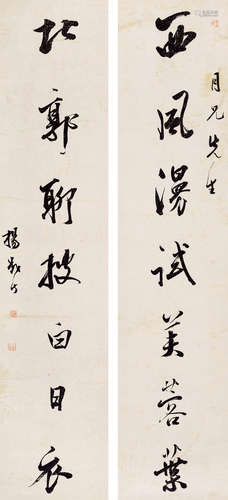 月兄先生
西風漫試芙蓉葉
北郭聊披白日衣
楊